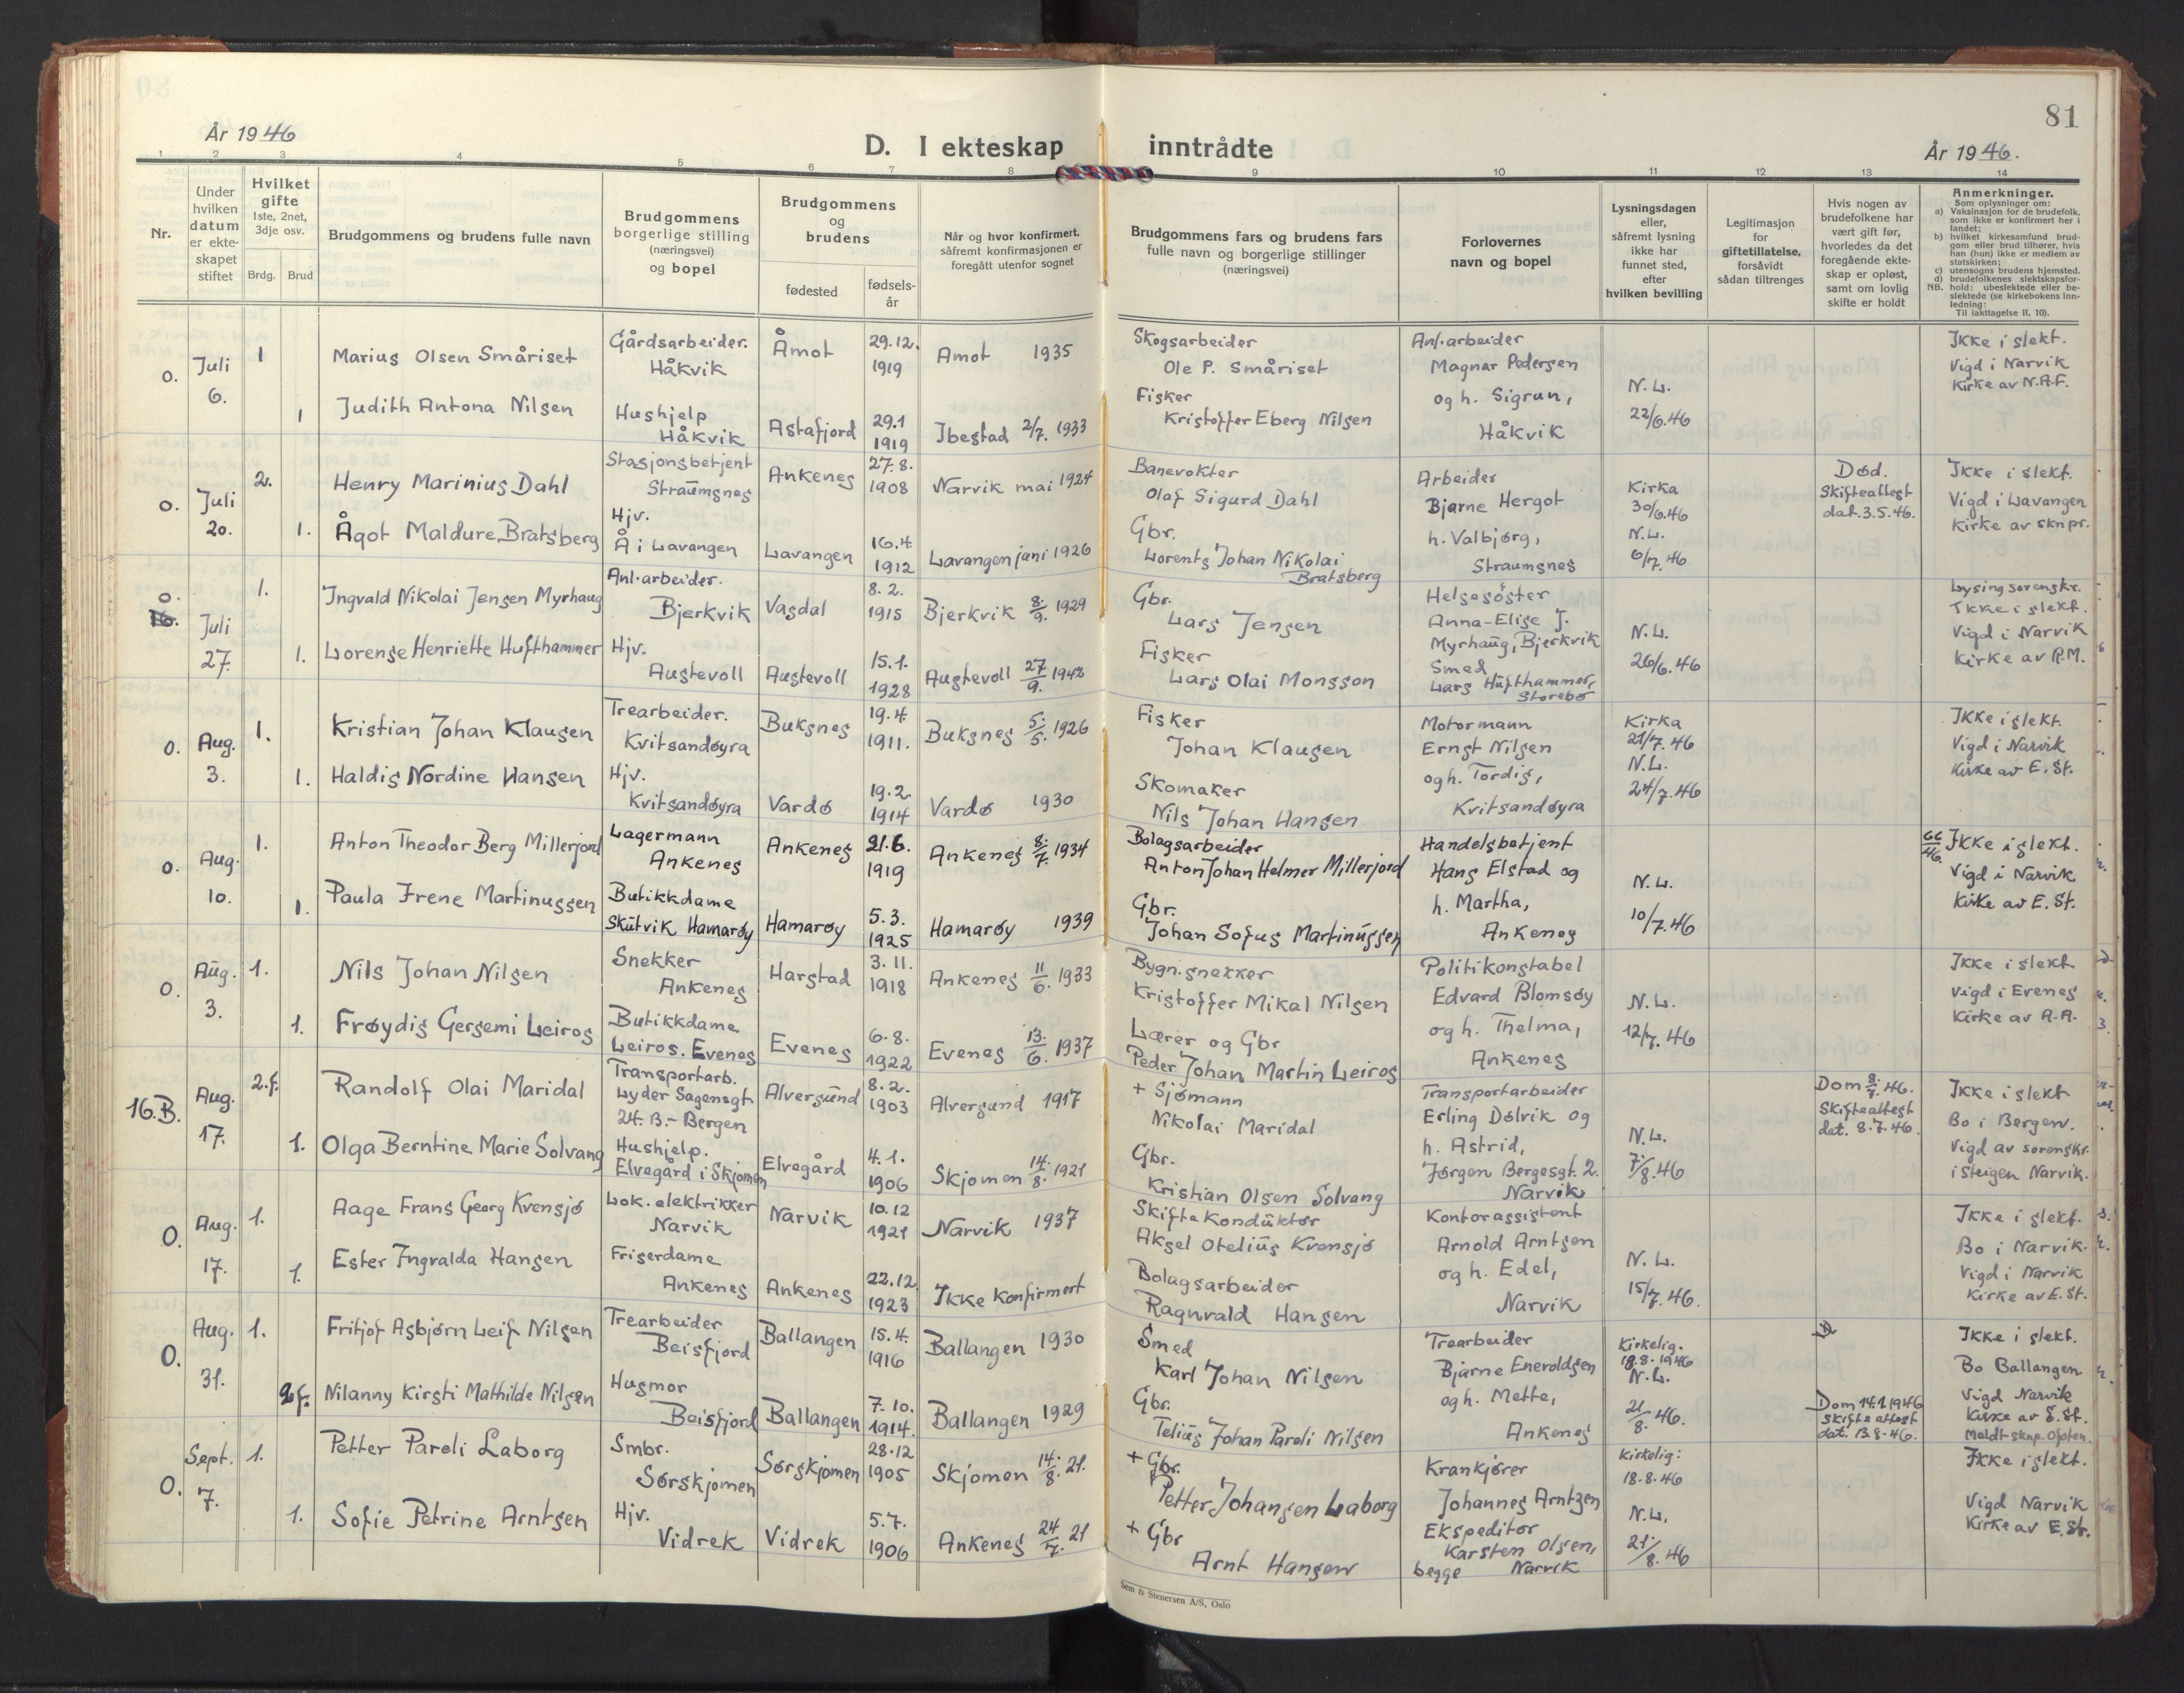 81
År 1946
D. I ekteskap inntrådte
År 1946.
1 2 3 4 5 6 7 8 9 10 11 12 13 14
Nr.
Under hvilken datum er ekteskapet stiftet
Hvilket gifte
1ste, 2net, 3dje osv.
Brdg. Brud
Brudgommens og brudens fulle navn
Brudgommens borgerlige stilling (næringsvei) og bopel
Brudgommens og brudens
fødested
fødselsår
Når og hvor konfirmert, såfremt konfirmasjonen er foregått utenfor sognet
Brudgommens fars og brudens fars fulle navn og borgerlige stillinger (næringsvei)
Forlovernes navn og bopel
Lysningsdagen eller, såfremt lysning ikke har funnet sted, efter hvilken bevilling
Legitimasjon for giftetillatelse, forsåvidt sådan tiltrenges
Hvis nogen av brudefolkene har vært gift før, hvorledes da det foregående ekteskap er opløst, samt om lovlig skifte er holdt
Anmerkninger.
Som oplysninger om:
a) Vaksinasjon for de brudefolk, som ikke er konfirmert her i landet;
b) hvilket kirkesamfund brudgom eller brud tilhører, hvis han (hun) ikke er medlem av statskirken;
c) utensogns brudens hjemsted.
d) brudefolkenes slektskapsforhold: ubeslektede eller beslektede (se kirkebokens innledning:
NB.
Til iakttagelse II, 10).
o. Juli 6.
1 Marius Olsen Småriset
Gårdsarbeider. Håkvik
Åmot 29.12. 1919
Åmot 1935
Skogsarbeider
Ole P. Småriset
1 Judith Antona Nilsen
Hushjelp Håkvik
Astafjord 29.1 1919
Ibestad 2/7. 1933
Fisker
Kristoffer Eberg Nilsen
Anl.arbeider
Magnar Pedersen
og h. Sigrun,
Håkvik
N.L.
22/6.46
Ikke i slekt.
Vigd i Narvik
Kirke av N.A.F.
o. Juli 20.
2. Henry Marinius Dahl
Stasjonsbetjent Straumsnes
Ankenes 27.8. 1908
Narvik mai 1924
Banevokter
Olaf Sigurd Dahl
1. Ågot Maldure Bratsberg
Hjv.
Å i Lavangen
Lavangen 16.4 1912
Lavangen juni 1926
Gbr.
Lorents Johan Nikolai
Bratsberg
Arbeider
Bjarne Hergot
h. Valbjørg,
Straumsnes
Kirka
30/6.46
N.L.
6/7.46
Død.
Skifteattest
dat. 3.5.46.
Ikke i slekt.
Vigd i Lavangen
Kirke av sknpr.
o. Juli 27.
1. Ingvald Nikolai Jensen Myrhaug
Anl.arbeider. Bjerkvik
Vasdal 8.2. 1915
Bjerkvik 8./9. 1929
Gbr.
Lars Jensen
1. Lorense Henriette Hufthammer
Hjv. Austevoll
Austevoll 15.1. 1928
Austevoll 27/9. 1942
Fisker
Lars Olai Monsson
Helsesöster
Anna-Elise J.
Myrhaug, Bjerkvik
Smed
Lars Hufthammer,
Storebø
N.L.
26/6.46
Lysing sorenskr.
Ikke i slekt.
Vigd i Narvik
Kirke av R.M.
o. Aug. 3.
1. Kristian Johan Klausen
Trearbeider. Kvitsandøyra
Buksnes 19.4. 1911.
Buksnes 5./5. 1926
Fisker
Johan Klausen
1. Haldis Nordine Hansen
Hjv. Kvitsandøyra
Vardø 19.2 1914
Vardø 1930
Skomaker
Nils Johan Hansen
Motormann
Ernst Nilsen
og h. Tordis,
Kvitsandøyra
Kirka
21/7.46
N.L.
24/7.46
Ikke i slekt.
Vigd i Narvik
Kirke av E. St.
o. Aug. 10.
1. Anton Theodor Berg Millerjord
Lagermann Ankenes
Ankenes 21.6. 1919
Ankenes 8./7. 1934
Bolagsarbeider
Anton Johan Helmer Millerjord
1. Paula Irene Martinussen
Butikkdame
Skutvik Hamarøy
Hamarøy 5.3. 1925
Hamarøy 1939
Gbr.
Johan Sofus Martinussen
Handelsbetjent
Hans Elstad og
h. Martha,
Ankenes
N.L.
10/7.46
66/46
Ikke i slekt.
Vigd i Narvik
Kirke av E. St.
o. Aug. 3.
1. Nils Johan Nilsen
Snekker Ankenes
Harstad 3.11. 1918
Ankenes 11/6. 1933
Bygn.snekker
Kristoffer Mikal Nilsen
1. Frøydis Gersemi Leiros
Butikkdame
Leiros. Evenes
Evenes 6.8. 1922
Evenes 13./6. 1937
Lærer og Gbr
Peder Johan Martin Leiros
Politikonstabel
Edvard Blomsøy
og h. Thelma,
Ankenes
N.L.
12/7.46
Ikke i slekt
Vigd i Evenes
Kirke av A.A.
16.B. Aug. 17.
2.f. Randolf Olai Maridal
Transportarb.
Lyder Sagensgt.
24.B.- Bergen
Alversund 8.2. 1903
Alversund 1917
+ Sjømann
Nikolai Maridal
1. Olga Berntine Marie Solvang
Hushjelp.
Elvegård i Skjomen
Elvegård 4.1. 1906
Skjomen 14./8. 1921
Gbr.
Kristian Olsen Solvang
Transportarbeider
Erling Dølvik og
h. Astrid,
Jørgen Bergesgt. 2.
Narvik
N.L.
7./8.46
Dom 8./7.46.
Skifteattest
dat. 8.7.46.
Ikke i slekt
Bo i Bergen.
Vigd av sorenskr.
i Steigen Narvik.
O. Aug. 17.
1. Aage Frans Georg Kvensjø
Lok. elektrikker Narvik
Narvik 10.12 1921
Narvik 1937
Skiftekonduktør
Aksel Otelius Kvensjø
1. Ester Ingvalda Hansen
Friserdame Ankenes
Ankenes 22.12 1923
Ikke konfirmert
Bolagsarbeider
Ragnvald Hansen
Kontorassistent
Arnold Arntsen
og h. Edel,
Narvik
N.L.
15/7.46.
Ikke i slekt.
Bo i Narvik.
Vigd i Narvik
Kirke av E. St.
O. Aug. 31.
1. Fritjof Asbjørn Leif Nilsen
Trearbeider Beisfjord
Ballangen 15.4. 1916
Ballangen 1930
Smed
Karl Johan Nilsen
2.f. Nilanny Kirsti Mathilde Nilsen
Husmor Beisfjord
Ballangen 7.10. 1914.
Ballangen 1929
Gbr.
Telius Johan Pareli Nilsen
Trearbeider
Bjarne Eneroldsen
og h. Mette,
Ankenes
Kirkelig.
18.8.1946
N.L.
21/8.46.
Dom 14.1.1946
Skifteattest
dat. 13.8.46.
Ikke i slekt.
Bo Ballangen
Vigd Narvik
Kirke av E. St.
Meldt sknp. Ofoten.
O. Sept. 7.
1. Petter Pareli Laborg
Smbr. Sørskjomen
Sørskjomen 28.12 1905
Skjomen 14./8. 21.
+ Gbr.
Petter Johansen Laborg
1. Sofie Petrine Arntsen
Hjv. Vidrek
Vidrek 5.7. 1906
Ankenes 24/7. 21
+ Gbr
Arnt Hansen
Krankjører
Johannes Arntzen
Ekspeditør
Karsten Olsen,
begge Narvik
Kirkelig:
18.8.46
N.L.
21./8.46
Ikke i slekt.
Vigd Narvik
Kirke av E. St.
Sem & Stenersen A/S, Oslo